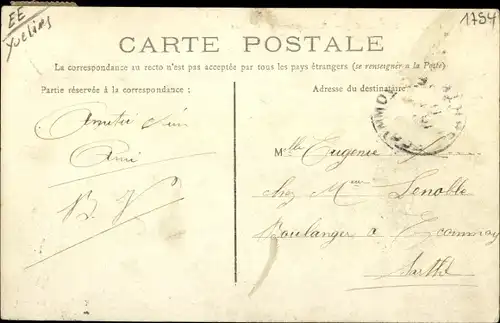 EE
Yvelines
1754
CARTE POSTALE
La correspondance au recto n'est pas acceptée par tous les pays étrangers (se renseigner a la Poste)
Partie réservée à la correspondance :
Adresse du destinataire :
Amitié d'un
Ami
B V
Mlle Eugenie
chez Mme Lenoble
Boulanger a Ecommoy
Sarthe